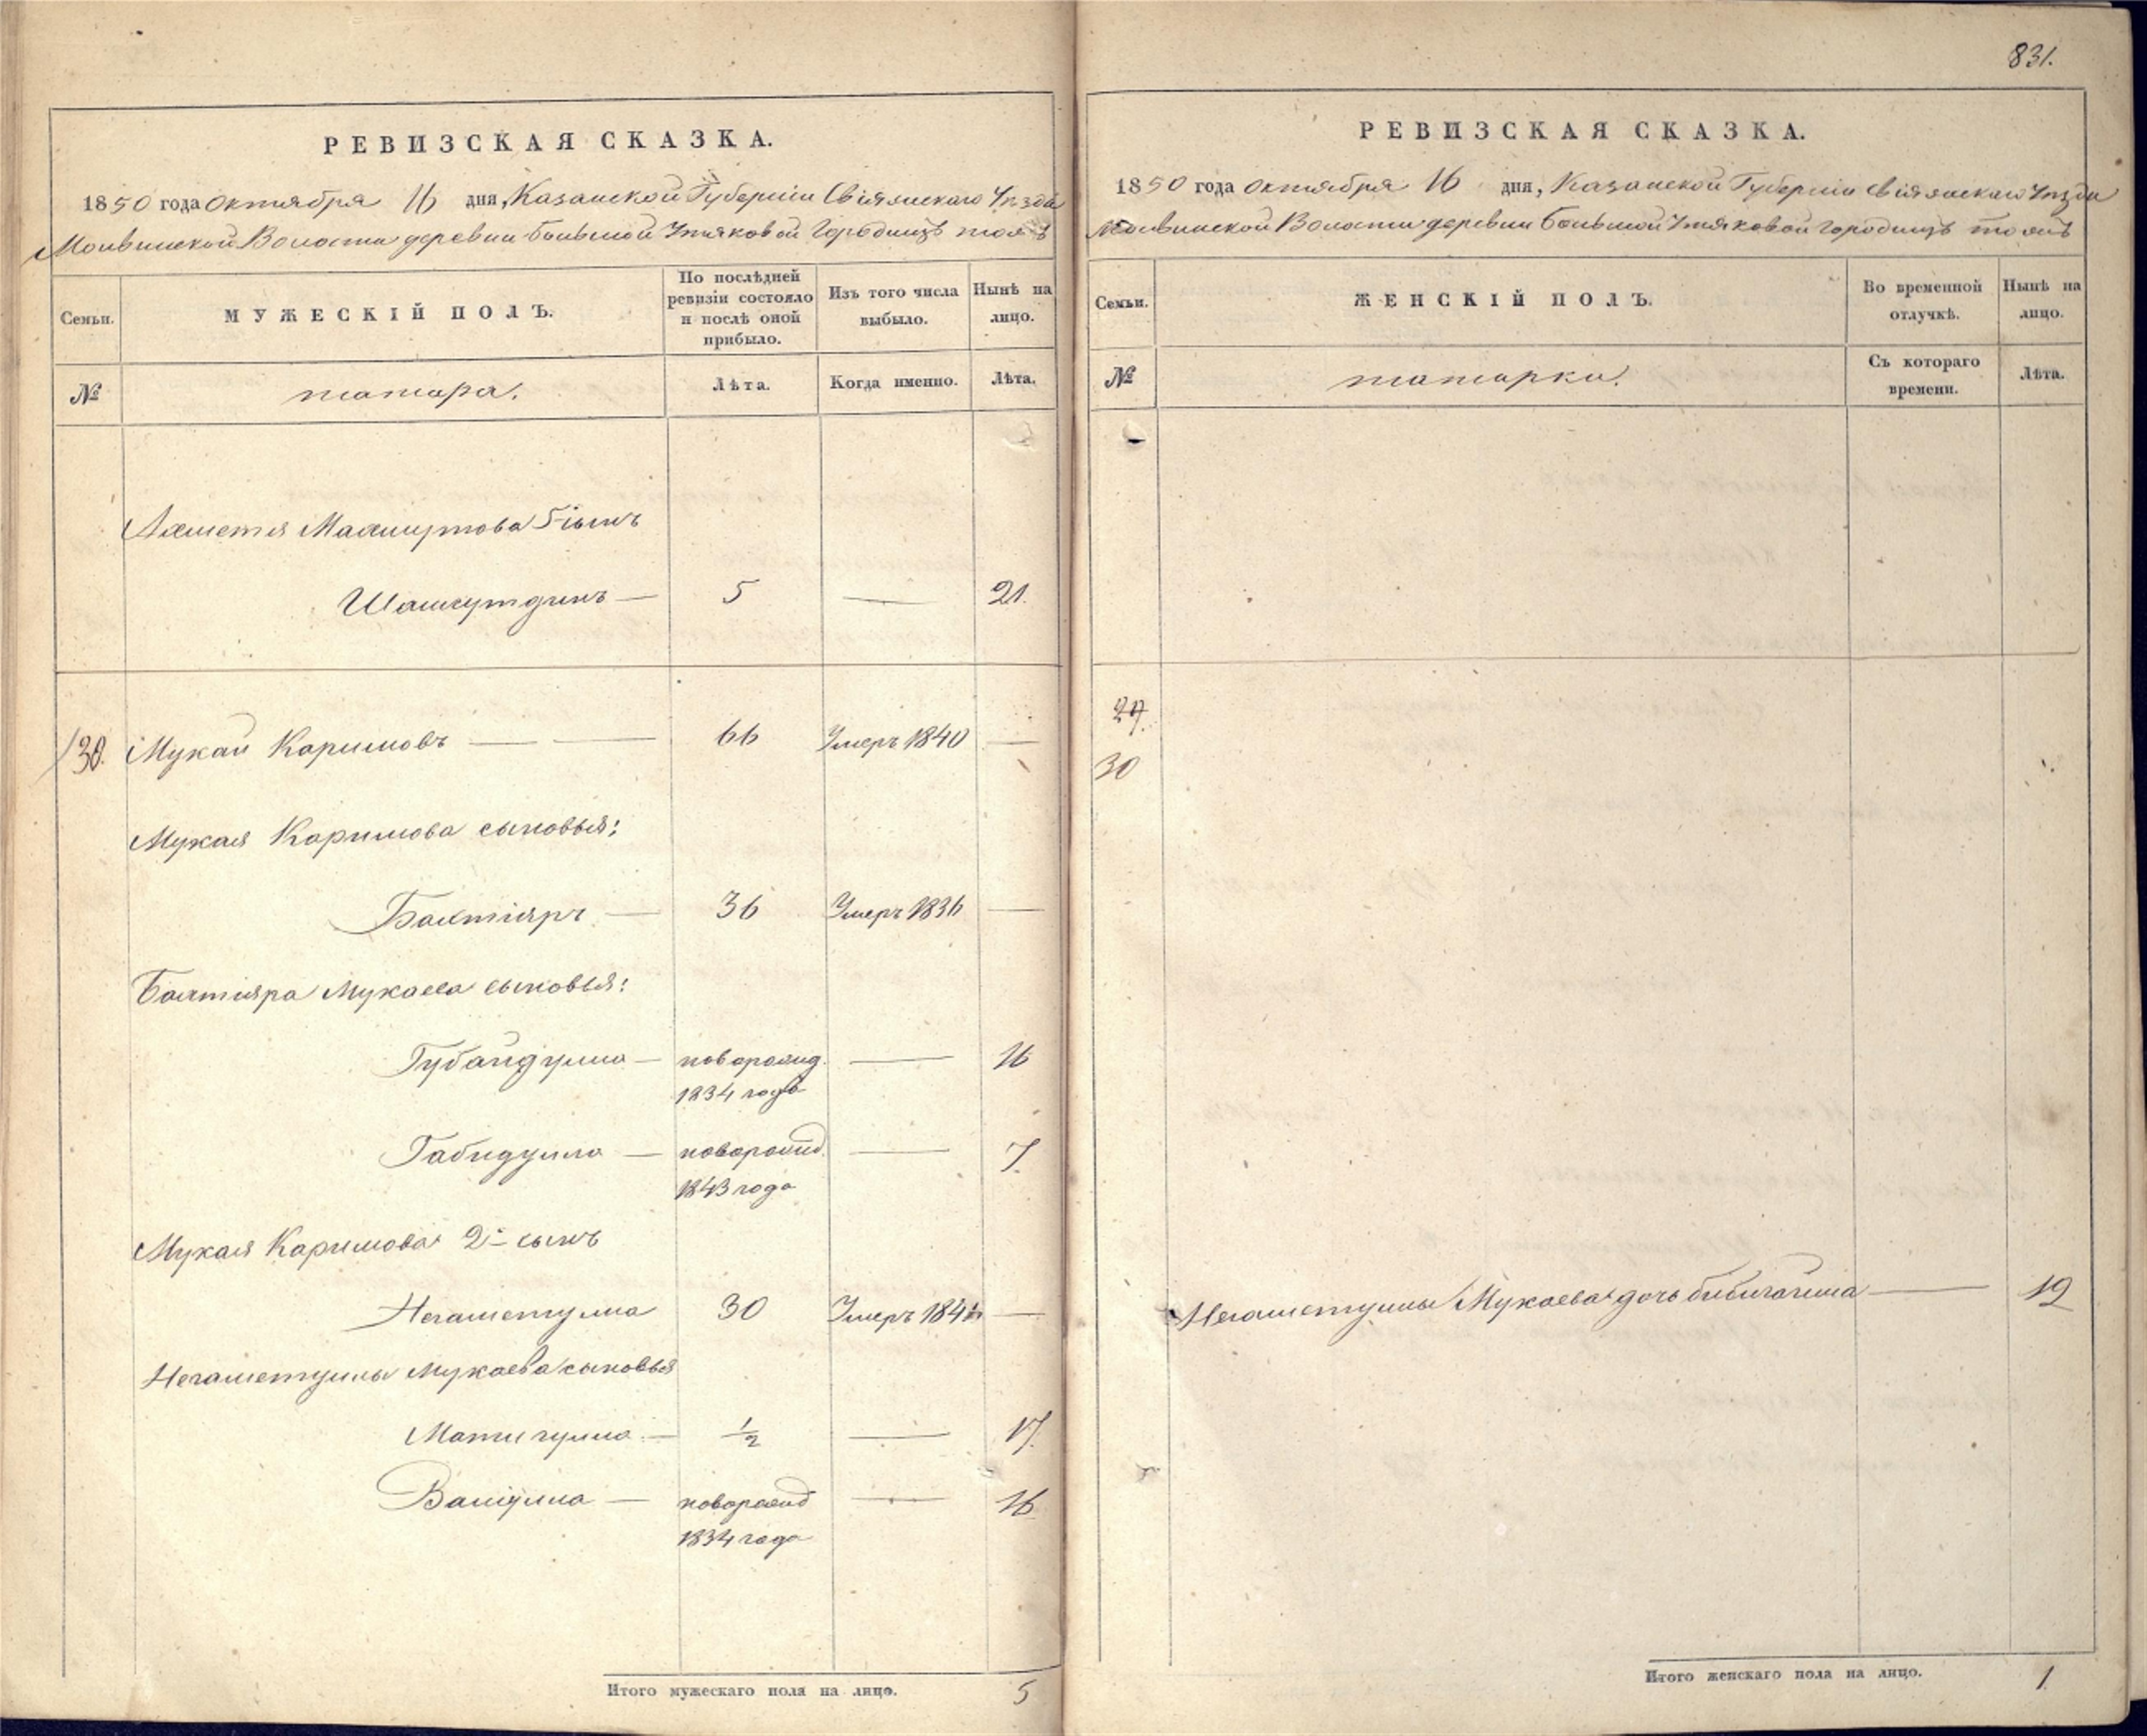 831.
РЕВИЗСКАЯ СКАЗКА.
1850 года Октября 16 дня, Казанской Губерніи Свіяжскаго Уѣзда
Молвинской Волости деревни большой Утяковой Городищѣ тожъ
Семьи.
МУЖЕСКІЙ ПОЛЪ.
По послѣдней ревизіи состояло и послѣ оной прибыло.
Изъ того числа выбыло.
Нынѣ на лицо.
№
татара.
Лѣта.
Когда именно.
Лѣта.
Ахметя Махмутова 5й сынъ
Шамсутдинъ — 5 — 21.
30. Мукай Каримовъ — — 66 Умеръ 1840 —
Мукая Каримова сыновья:
Бахтіяръ — 36 Умеръ 1836 —
Бахтіяра Мукаева сыновья:
Губайдулла — новорожд. — 16
1834 года
Габидулла — новорожд. — 7.
1843 года
Мукая Каримова 2й сынъ
Негаметулла 30 Умеръ —
Негаметуллы Мукаева сыновья
Матигулла — 1/2 — 17.
Валіулла — новорожд — 16
1834 года
Итого мужескаго пола на лицо. 5
РЕВИЗСКАЯ СКАЗКА.
1850 года Октября 16 дня, Казанской Губерніи Свіяжскаго Уѣзда
Молвинской Волости деревни большой Утяковой Городищѣ тожъ
Семьи.
ЖЕНСКІЙ ПОЛЪ.
Во временной отлучкѣ.
Нынѣ на лицо.
№
татарки.
Съ котораго времени.
Лѣта.
29.
30
Негаметуллы Мукаева дочь — 12
Итого женскаго пола на лицо. 1